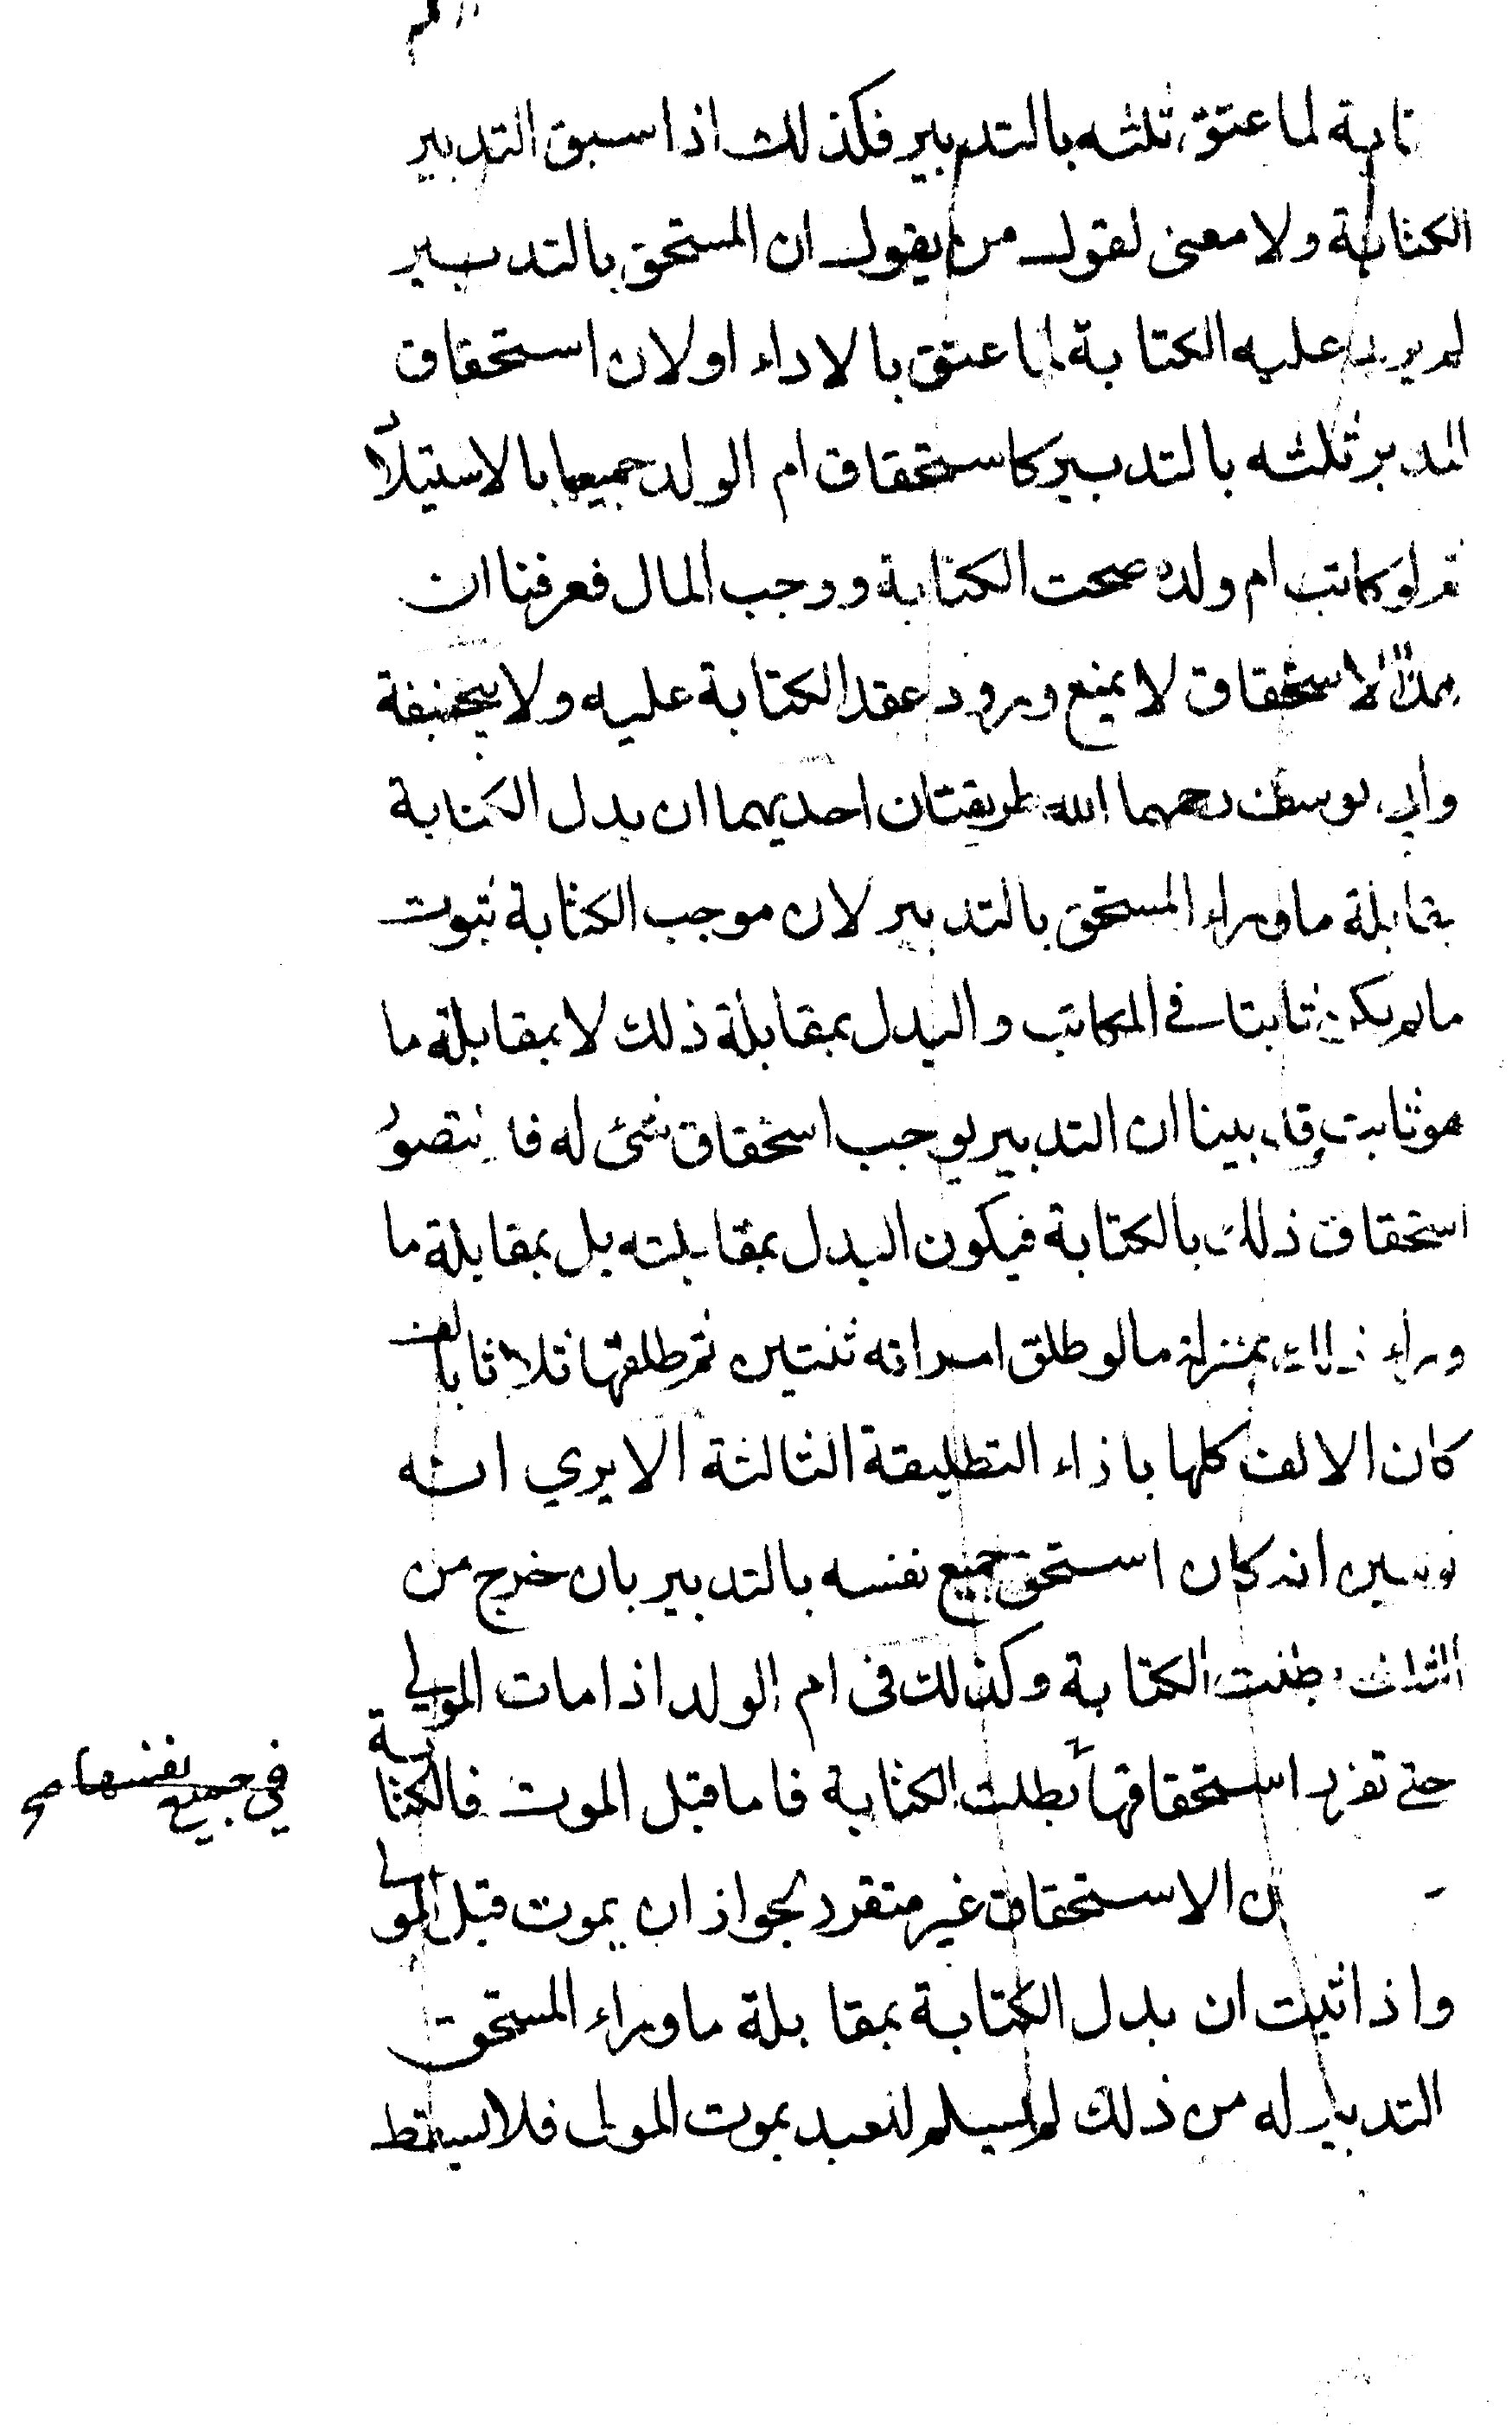 لما عتق ثلثه بالتدبير فكذلك اذا سبق التدبير
الكتابة ولا معنى لقول من يقول ان المستحق بالتدبير
لم يرد عليه الكتابة لما عتق بالاداء او لان استحقاق
المدبر ثلثه بالتدبير كاستحقاق ام الولد جميعها بالاستيلا
ثم لو كاتب ام ولده صحت الكتابة ووجب المال فعرفنا ان
الاستحقاق لا يمنع ورود عقد الكتابة عليه ولابيحنيفة
وابي يوسف رحمهما الله طريقتان احديهما ان بدل الكتابة
بمقابلة ما وراء المستحق بالتدبير لان موجب الكتابة ثبوت
ما لم يكن ثابتا في المكاتب والبدل بمقابلة ذلك لا بمقابلة ما
هو ثابت وقد بينا ان التدبير يوجب استحقاق شئ له فلا يتصور
استحقاق ذلك بالكتابة فيكون البدل بمقابلته بل بمقابلة ما
وراء ذلك بمنزلة ما لو طلق امراته ثنتين ثم طلقها ثلاثا بالف
كان الالف كلها باذاء التطليقة الثالثة الا يري انه
انه كان استحق جميع نفسه بالتدبير بان خرج من
الثلث بطلت الكتابة وكذلك في ام الولد اذا مات المولي
حتى تقرر استحقاقها بطلت الكتابة فاما قبل الموت فالكتابة
في جميع نفسها صح
الاستحقاق غير متقرر لجواز ان يموت قبل المولي
واذا ثبت ان بدل الكتابة بمقابلة ما وراء المستحق
التدبير له من ذلك لم يسلم للعبد بموت المولى فلا يسقط